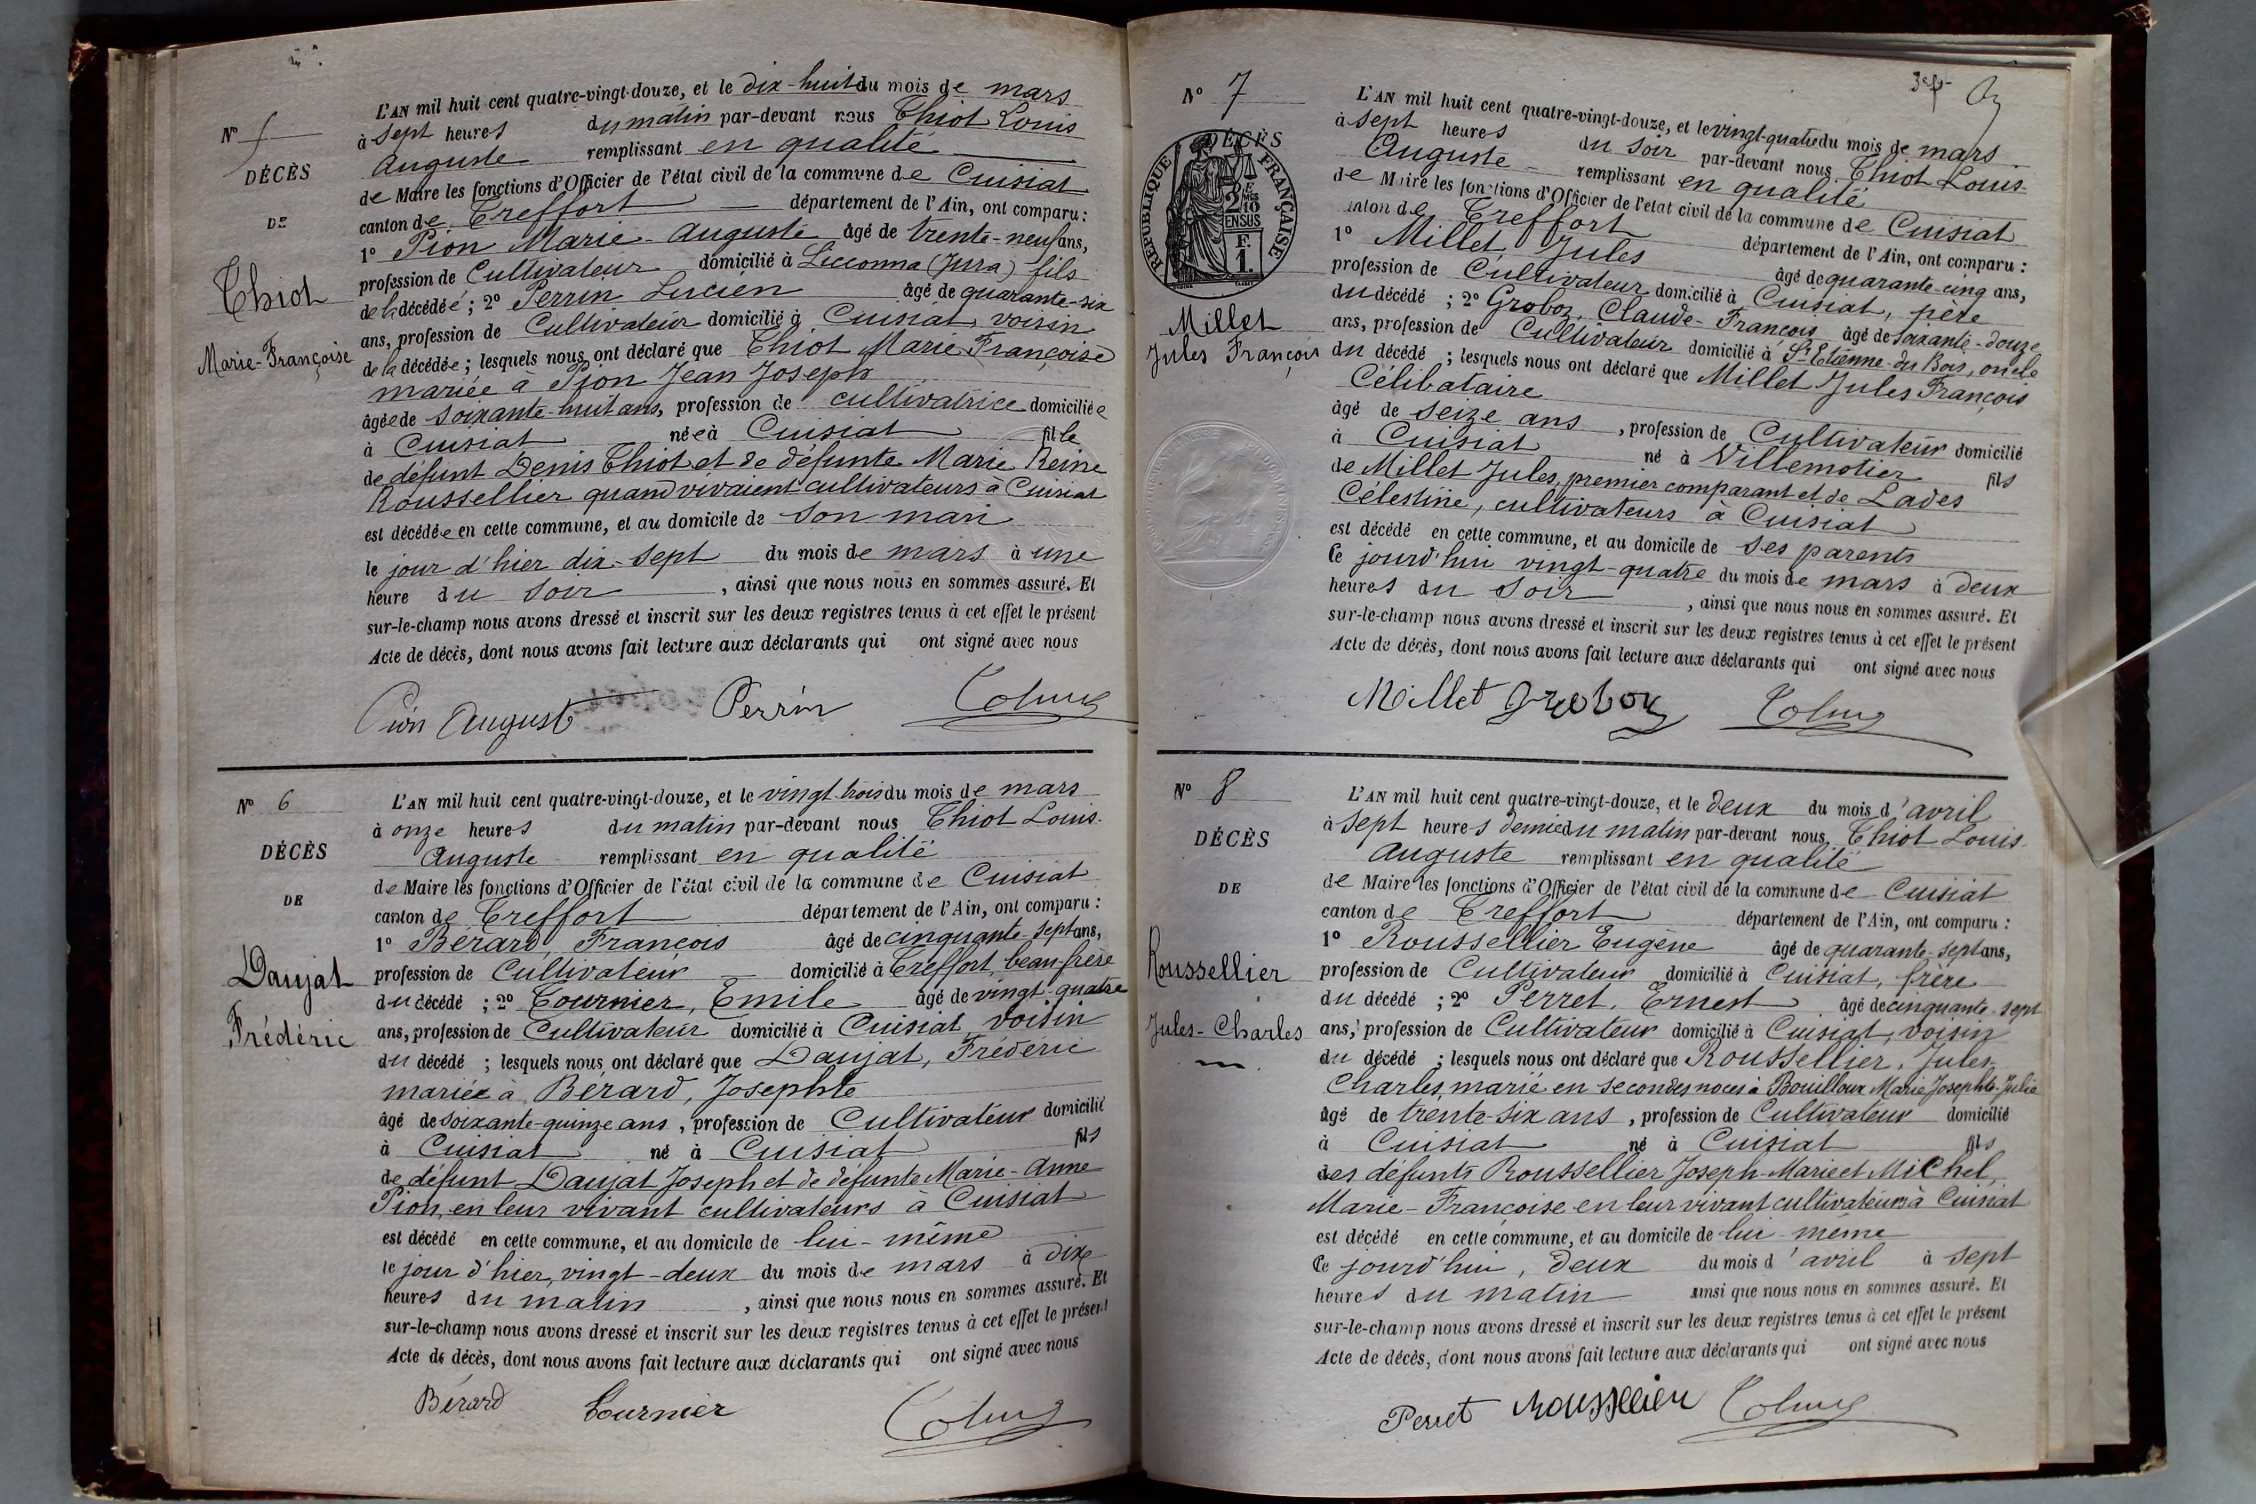 N° 5
DÉCÈS
DE
Thiot
Marie-Françoise
L'AN mil huit cent quatre-vingt-douze, et le dix-huit du mois de mars
à sept heures du matin par-devant nous Thiot Louis
Auguste remplissant en qualité
de Maire les fonctions d'Officier de l'état civil de la commune de Cuisiat
canton de Treffort département de l'Ain, ont comparu :
1° Pion Marie-Auguste âgé de trente-neuf ans,
profession de Cultivateur domicilié à Lecconna (Jura) fils
de la décédée ; 2° Perrin Lucien âgé de quarante-six
ans, profession de Cultivateur domicilié à Cuisiat, voisin
de la décédée ; lesquels nous ont déclaré que Thiot Marie Françoise
mariée à Pion Jean Joseph
âgée de soixante-huit ans, profession de cultivatrice domiciliée
à Cuisiat née à Cuisiat fille
de défunt Denis Thiot et de défunte Marie Reine
Roussellier quand vivaient cultivateurs à Cuisiat
est décédée en cette commune, et au domicile de son mari
le jour d'hier dix-sept du mois de mars à une
heure du soir , ainsi que nous nous en sommes assuré. Et
sur-le-champ nous avons dressé et inscrit sur les deux registres tenus à cet effet le présent
Acte de décès, dont nous avons fait lecture aux déclarants qui ont signé avec nous
Pion August Perrin
N° 6
DÉCÈS
DE
Daujat
Frédéric
L'AN mil huit cent quatre-vingt-douze, et le vingt-trois du mois de mars
à onze heures du matin par-devant nous Thiot Louis-
Auguste remplissant en qualité
de Maire les fonctions d'Officier de l'état civil de la commune de Cuisiat
canton de Treffort département de l'Ain, ont comparu :
1° Bérard, François âgé de cinquante-sept ans,
profession de Cultivateur domicilié à Treffort, beau-frère
du décédé ; 2° Tournier, Emile âgé de vingt-quatre
ans, profession de Cultivateur domicilié à Cuisiat, voisin
du décédé ; lesquels nous ont déclaré que Daujat, Frédéric
marié à Bérard, Josephte
âgé de soixante-quinze ans, profession de Cultivateur domicilié
à Cuisiat né à Cuisiat fils
de défunt Daujat Joseph et de défunte Marie-Anne
Pion, en leur vivant cultivateurs à Cuisiat
est décédé en cette commune, et au domicile de lui-même
le jour d'hier, vingt-deux du mois de mars à dix
heures du matin , ainsi que nous nous en sommes assuré. Et
sur-le-champ nous avons dressé et inscrit sur les deux registres tenus à cet effet le présent
Acte de décès, dont nous avons fait lecture aux déclarants qui ont signé avec nous
Bérard Tournier
N° 7
DÉCÈS
RÉPUBLIQUE FRANÇAISE
2 MES 10 EN SUS
F. 1.
Millet
Jules François
L'AN mil huit cent quatre-vingt-douze, et le vingt-quatre du mois de mars
à sept heures du soir par-devant nous Thiot Louis-
Auguste remplissant en qualité
de Maire les fonctions d'Officier de l'état civil de la commune de Cuisiat
canton de Treffort département de l'Ain, ont comparu :
1° Millet, Jules âgé de quarante-cinq ans,
profession de Cultivateur domicilié à Cuisiat, père
du décédé ; 2° Groboz, Claude-François âgé de soixante-douze
ans, profession de Cultivateur domicilié à St Etienne-du-Bois, oncle
du décédé ; lesquels nous ont déclaré que Millet Jules François
Célibataire
âgé de seize ans , profession de Cultivateur domicilié
à Cuisiat né à Villemotier fils
de Millet Jules, premier comparant et de Lades
Célestine, cultivateurs à Cuisiat
est décédé en cette commune, et au domicile de ses parents
Ce jourd'hui vingt-quatre du mois de mars à deux
heures du soir , ainsi que nous nous en sommes assuré. Et
sur-le-champ nous avons dressé et inscrit sur les deux registres tenus à cet effet le présent
Acte de décès, dont nous avons fait lecture aux déclarants qui ont signé avec nous
Millet Groboz
N° 8
DÉCÈS
DE
Roussellier
Jules-Charles
L'AN mil huit cent quatre-vingt-douze, et le deux du mois d'avril
à sept heures demie du matin par-devant nous Thiot Louis-
Auguste remplissant en qualité
de Maire les fonctions d'Officier de l'état civil de la commune de Cuisiat
canton de Treffort département de l'Ain, ont comparu :
1° Roussellier Eugène âgé de quarante-sept ans,
profession de Cultivateur domicilié à Cuisiat, frère
du décédé ; 2° Perret, Ernest âgé de cinquante-sept
ans, profession de Cultivateur domicilié à Cuisiat, voisin
du décédé ; lesquels nous ont déclaré que Roussellier, Jules
Charles, marié en secondes noces à Bouilloux Marie Josephte-Julie
âgé de trente-six ans , profession de Cultivateur domicilié
à Cuisiat né à Cuisiat fils
des défunts Roussellier Joseph-Marie et Michel,
Marie-Françoise en leur vivant cultivateurs à Cuisiat
est décédé en cette commune, et au domicile de lui-même
Ce jourd'hui, deux du mois d'avril à sept
heures du matin ainsi que nous nous en sommes assuré. Et
sur-le-champ nous avons dressé et inscrit sur les deux registres tenus à cet effet le présent
Acte de décès, dont nous avons fait lecture aux déclarants qui ont signé avec nous
Perret Roussellier